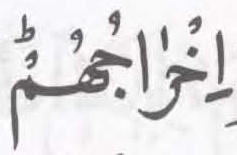 اِخْرَاجُهُمْؕ